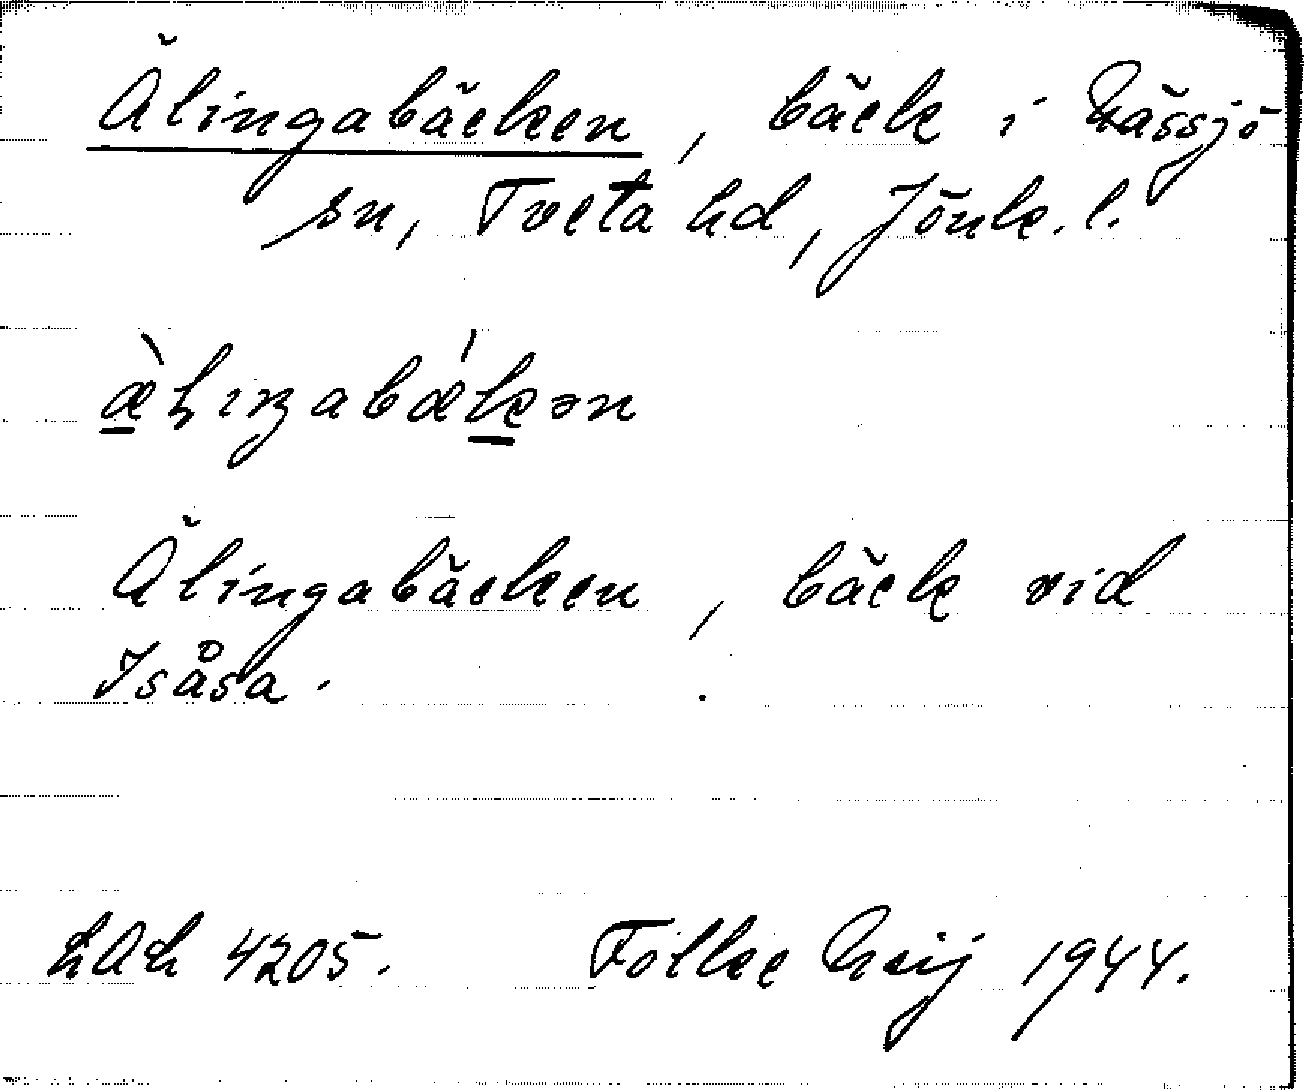 Älingabäcken, bäck i Nässjö
sn, Tveta hd, Jönk. l.
æ̀lıŋabǽkən
Älingabäcken, bäck vid
Isåsa.
LAL 4205. Folke Neij 1944.